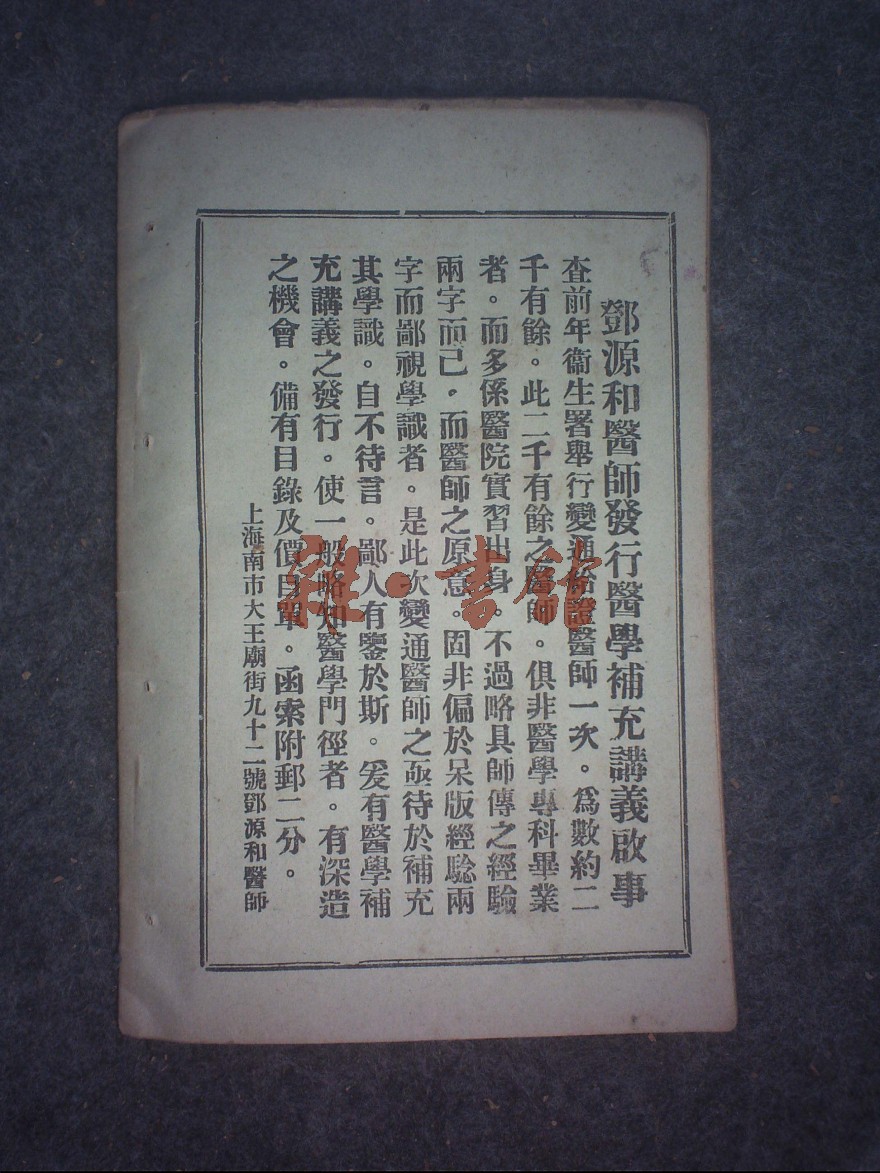 鄧源和醫師發行醫學補充講義啟事
查前年衞生署舉行變通給證醫師一次。爲數約二
千有餘。此二千有餘之醫師。俱非醫學專科畢業
者。而多係醫院實習出身。不過略具師傳之經驗
兩字而已。而醫師之原意。固非偏於呆版經驗兩
字而鄙視學識者。是此次變通醫師之亟待於補充
其學識。自不待言。鄙人有鑒於斯。爰有醫學補
充講義之發行。使一般略知醫學門徑者。有深造
之機會。備有目錄及價目單。函索附郵二分。
上海南市大王廟街九十二號鄧源和醫師
雜·書館